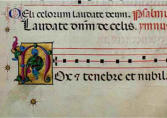 Celi celorum laudate deum. Psalmus
Laudate dnm de celis. ymnus
Nox & tenebre et nubil